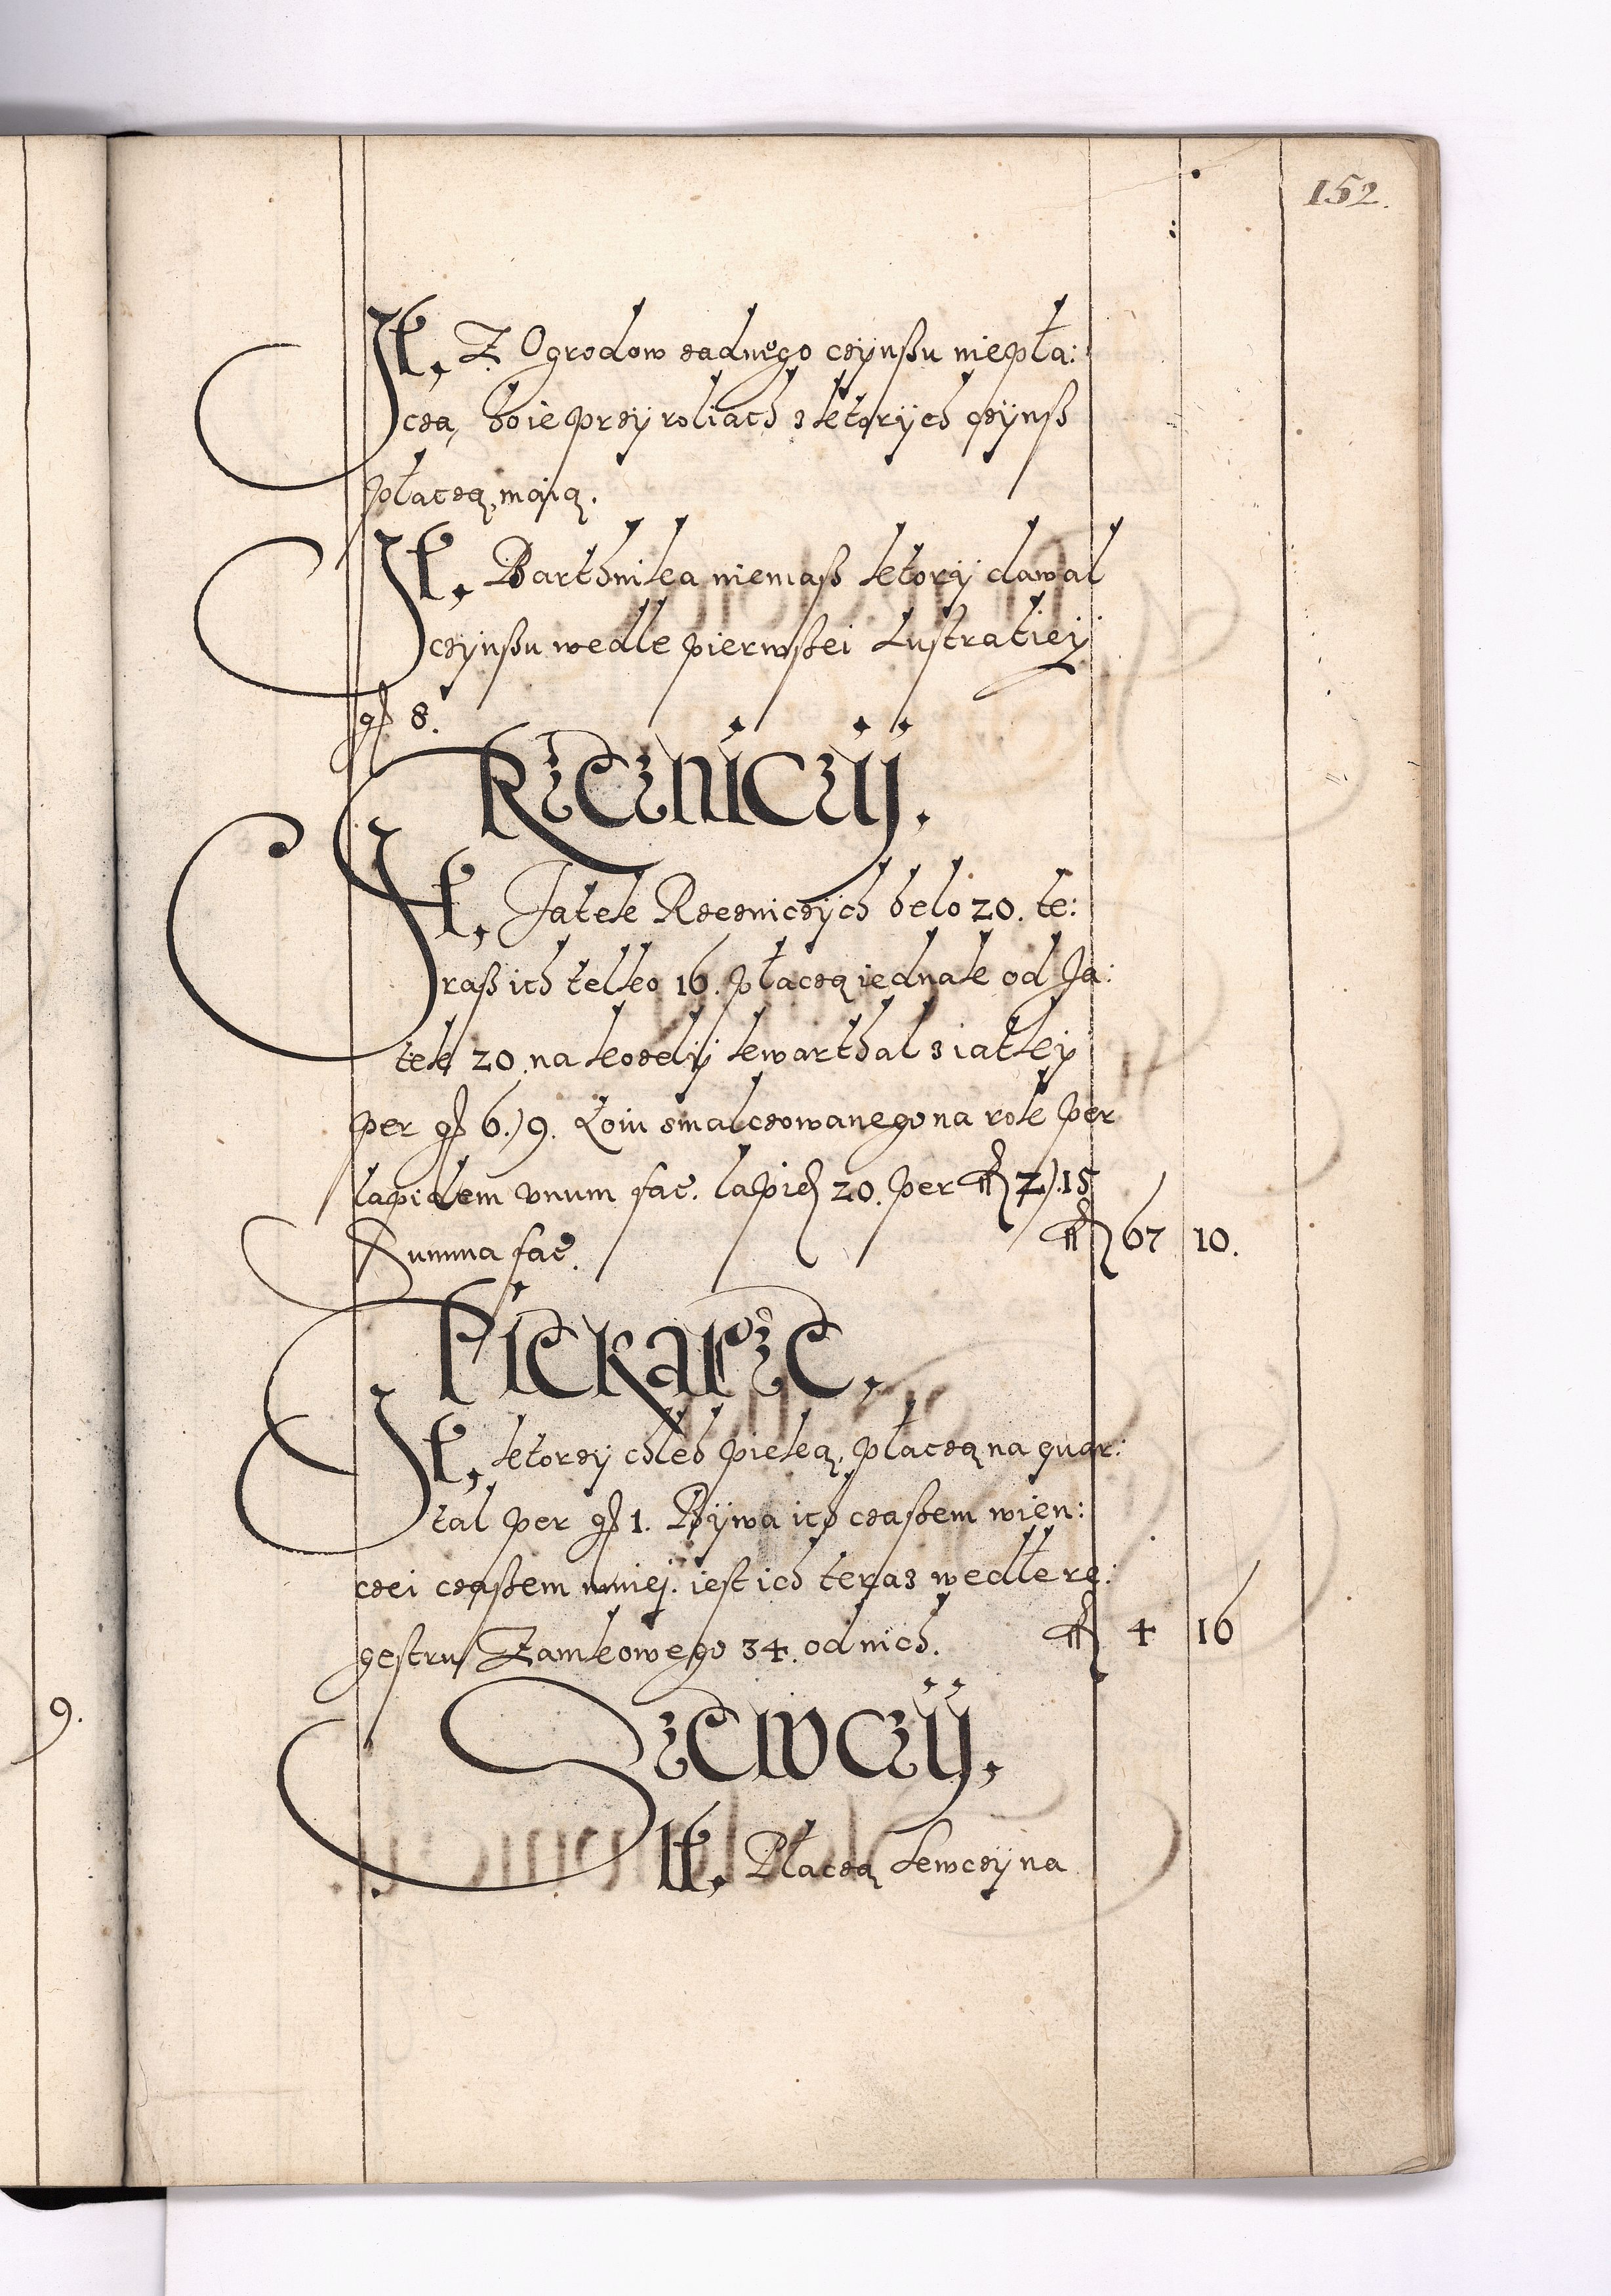 152.
It. Z Ogrodow zadnego czynßu niepła:
cza, bo ie przy roliach z ktorych czynß
płaczą, maią.
It. Barthnika niemaß ktory dawał
czynßu wedle pierwßei Lustratiey
gſ 8.
Rzezniczy.
It. Jatek Rzezniczych belo 20. te:
raß ich telko 16. płaczą iednak od Ja:
tek 20. na kozdy kwarthal z iatky
per gſ 6./9. Łoiu smalczowanego na rok per
lapidem unum fac. lapid 20. per fl 2/.15
Summa fac. fl 67 10.
Piekarze.
It. ktorzy chleb pieką, płaczą na quar:
tal per gſ 1. Bywa ich czaßem wien:
czei czaßem mniej. iest ich teraz wedle re:
gestru Zamkowego 34. od nich. fl 4 16
9.
Szewczy.
It. Płaczą Sewczy na